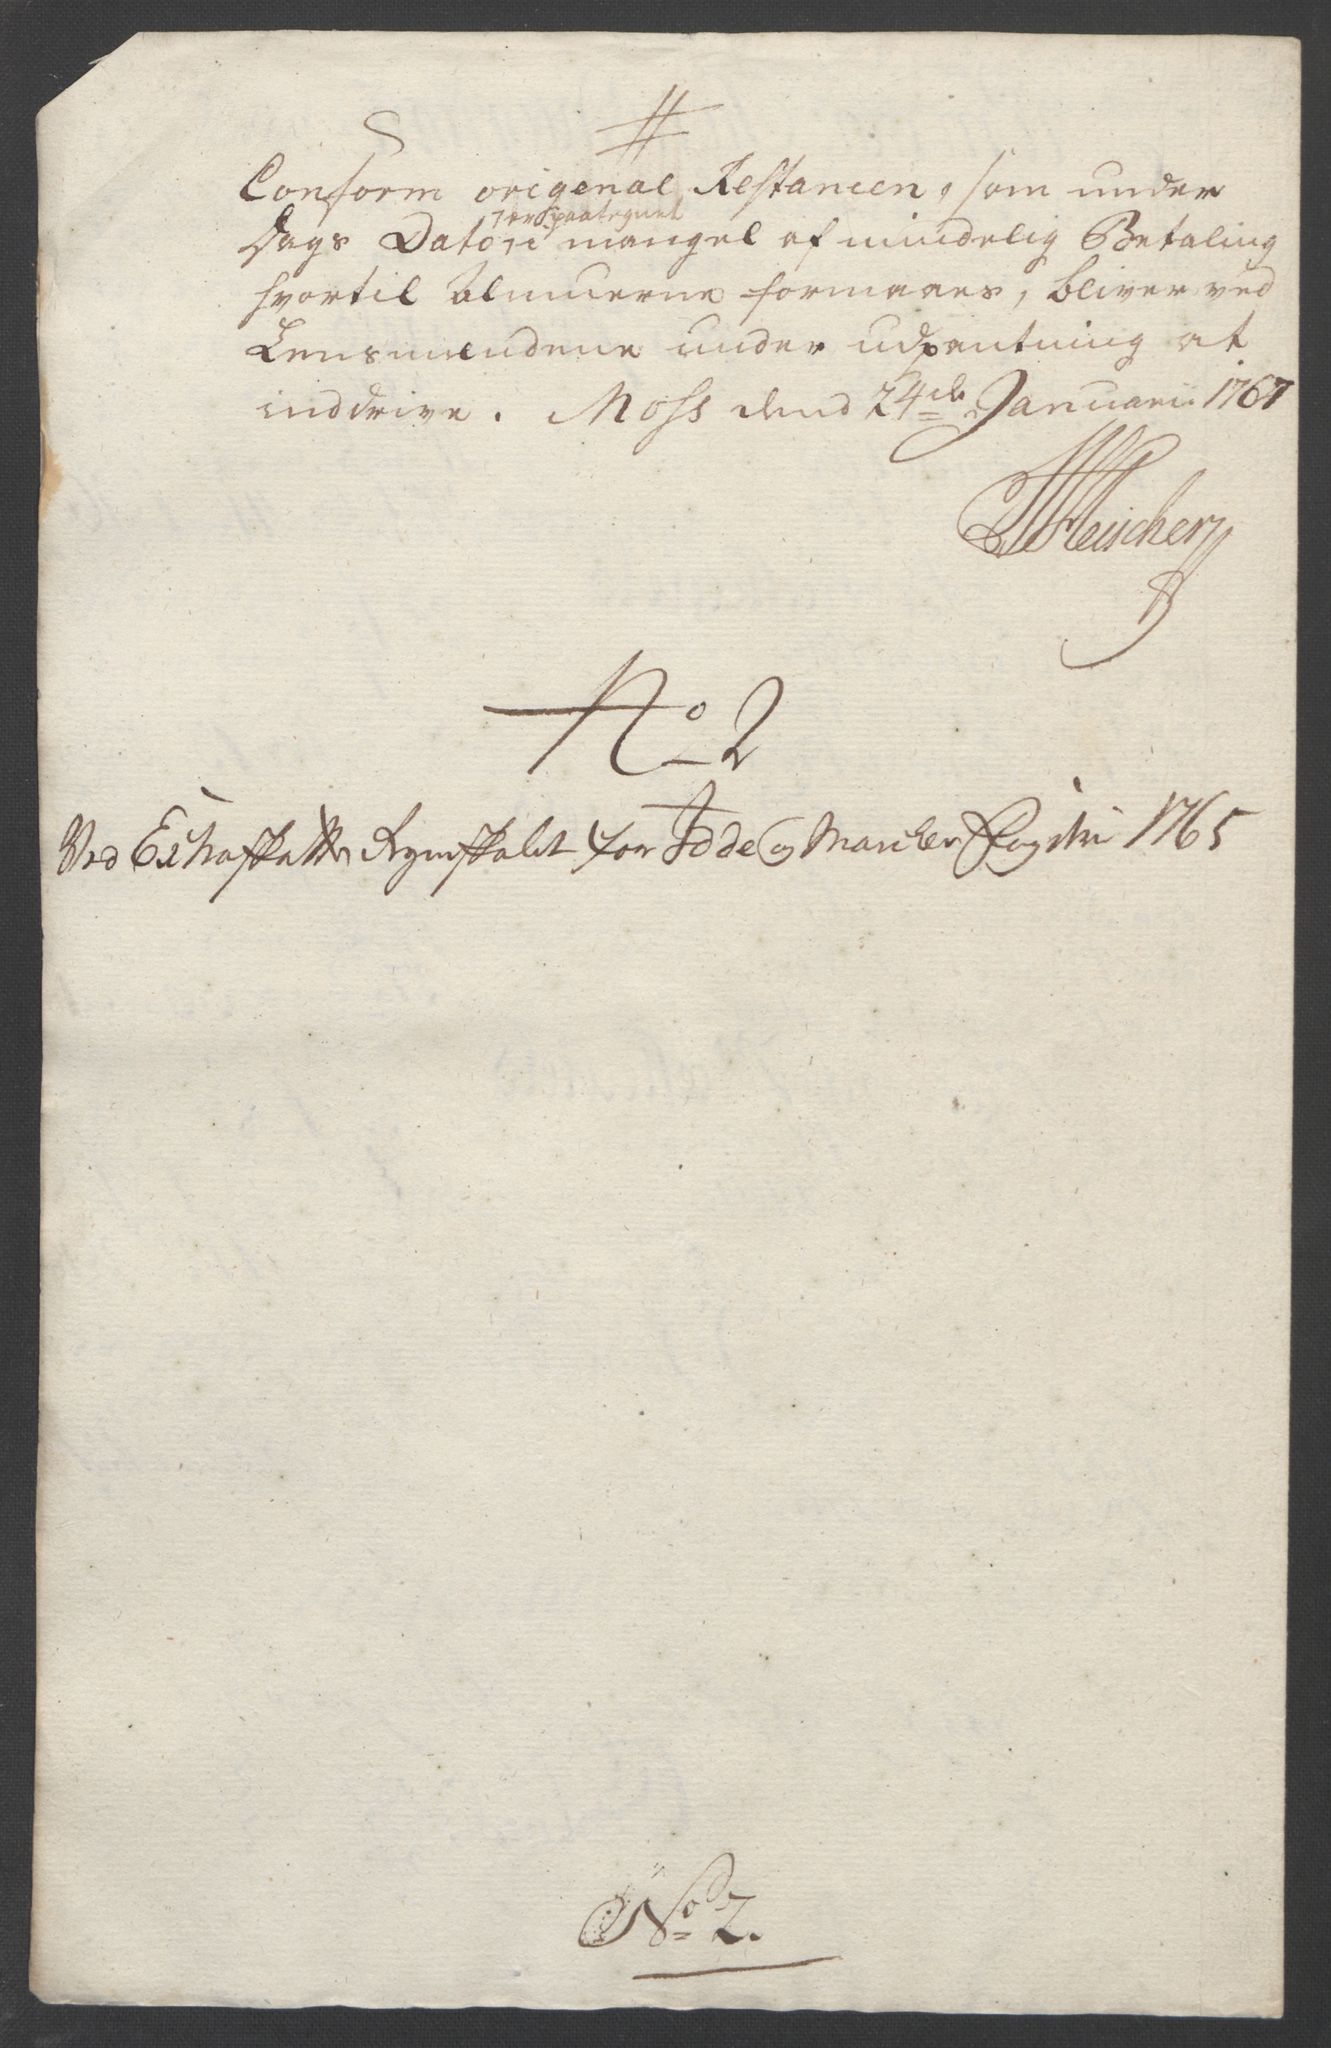 Conform origenal Restancen, som under
Dags Dato er paategnet i mangel af mindelig Betaling
hvortil Almuerne formanes, bliver ved
Lensmendene under udpantning at
inddrive. Moss dend 24de Januarii 1767
Fleischer
No 2
Ved Extraskattens Regnskabet for Idde og Marcker Fogderi 1765
No 2.